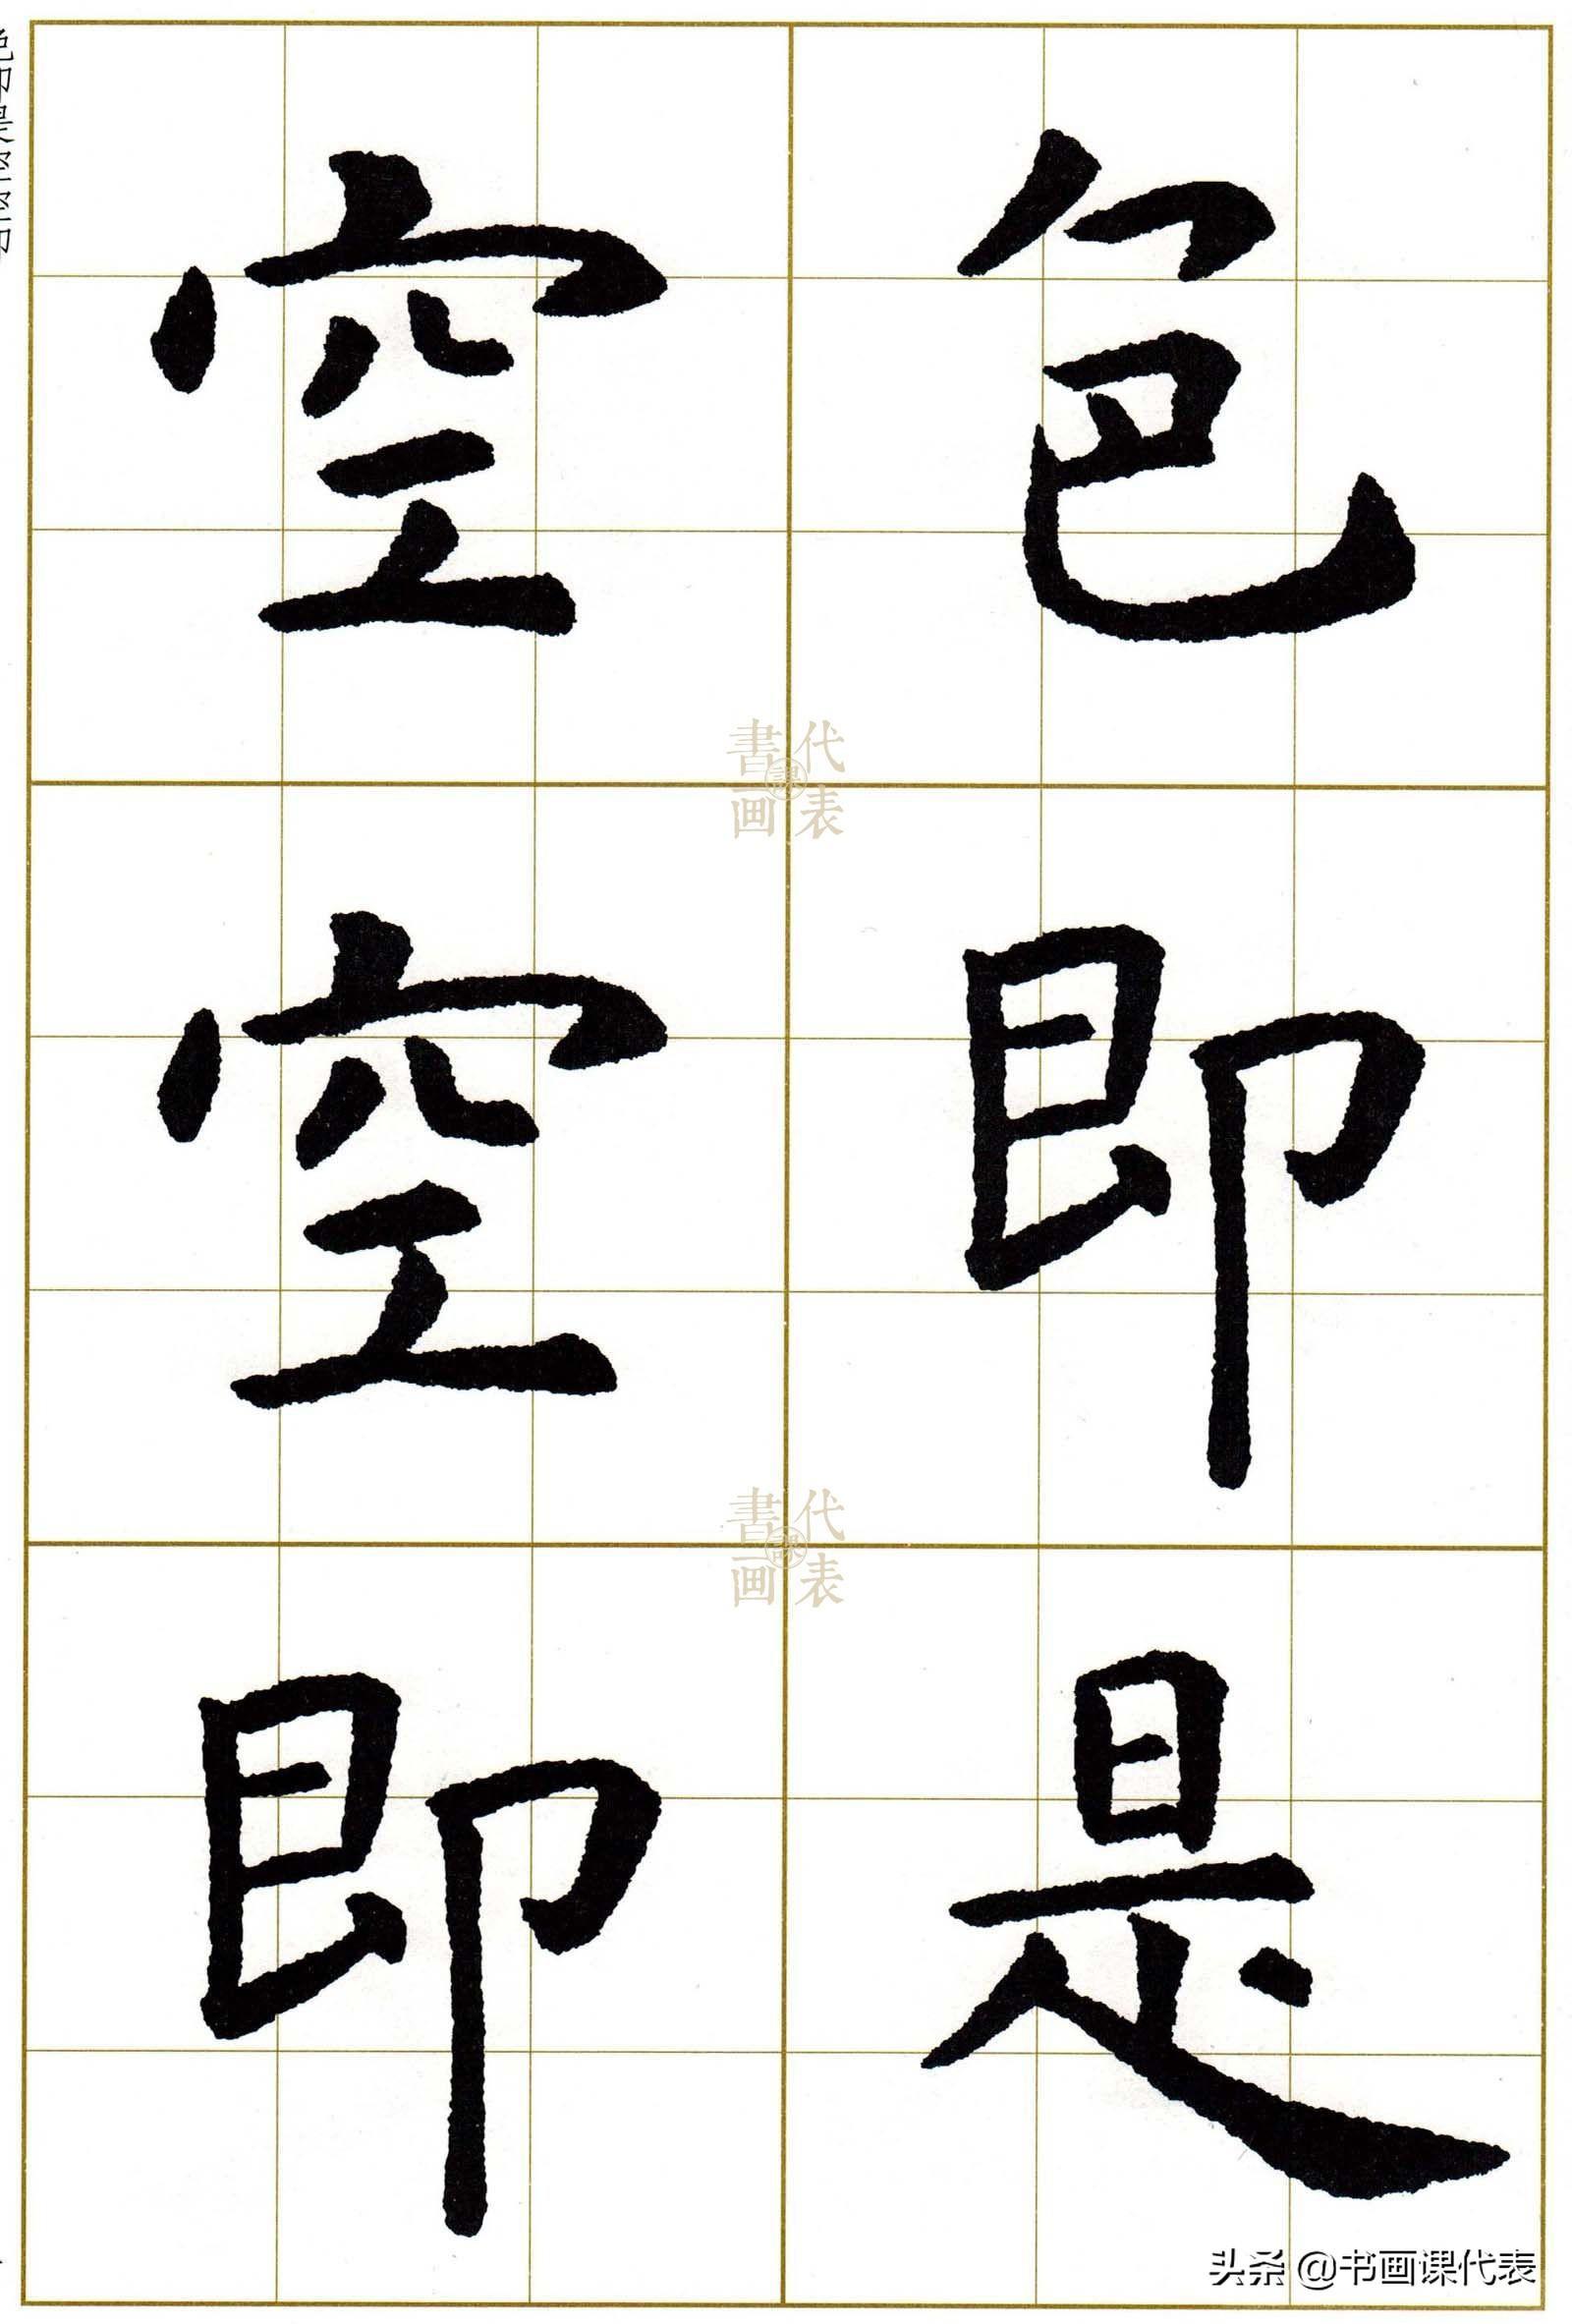 色即是
空空即
色即是空空即
書画課代表
書画課代表
头条 @书画课代表